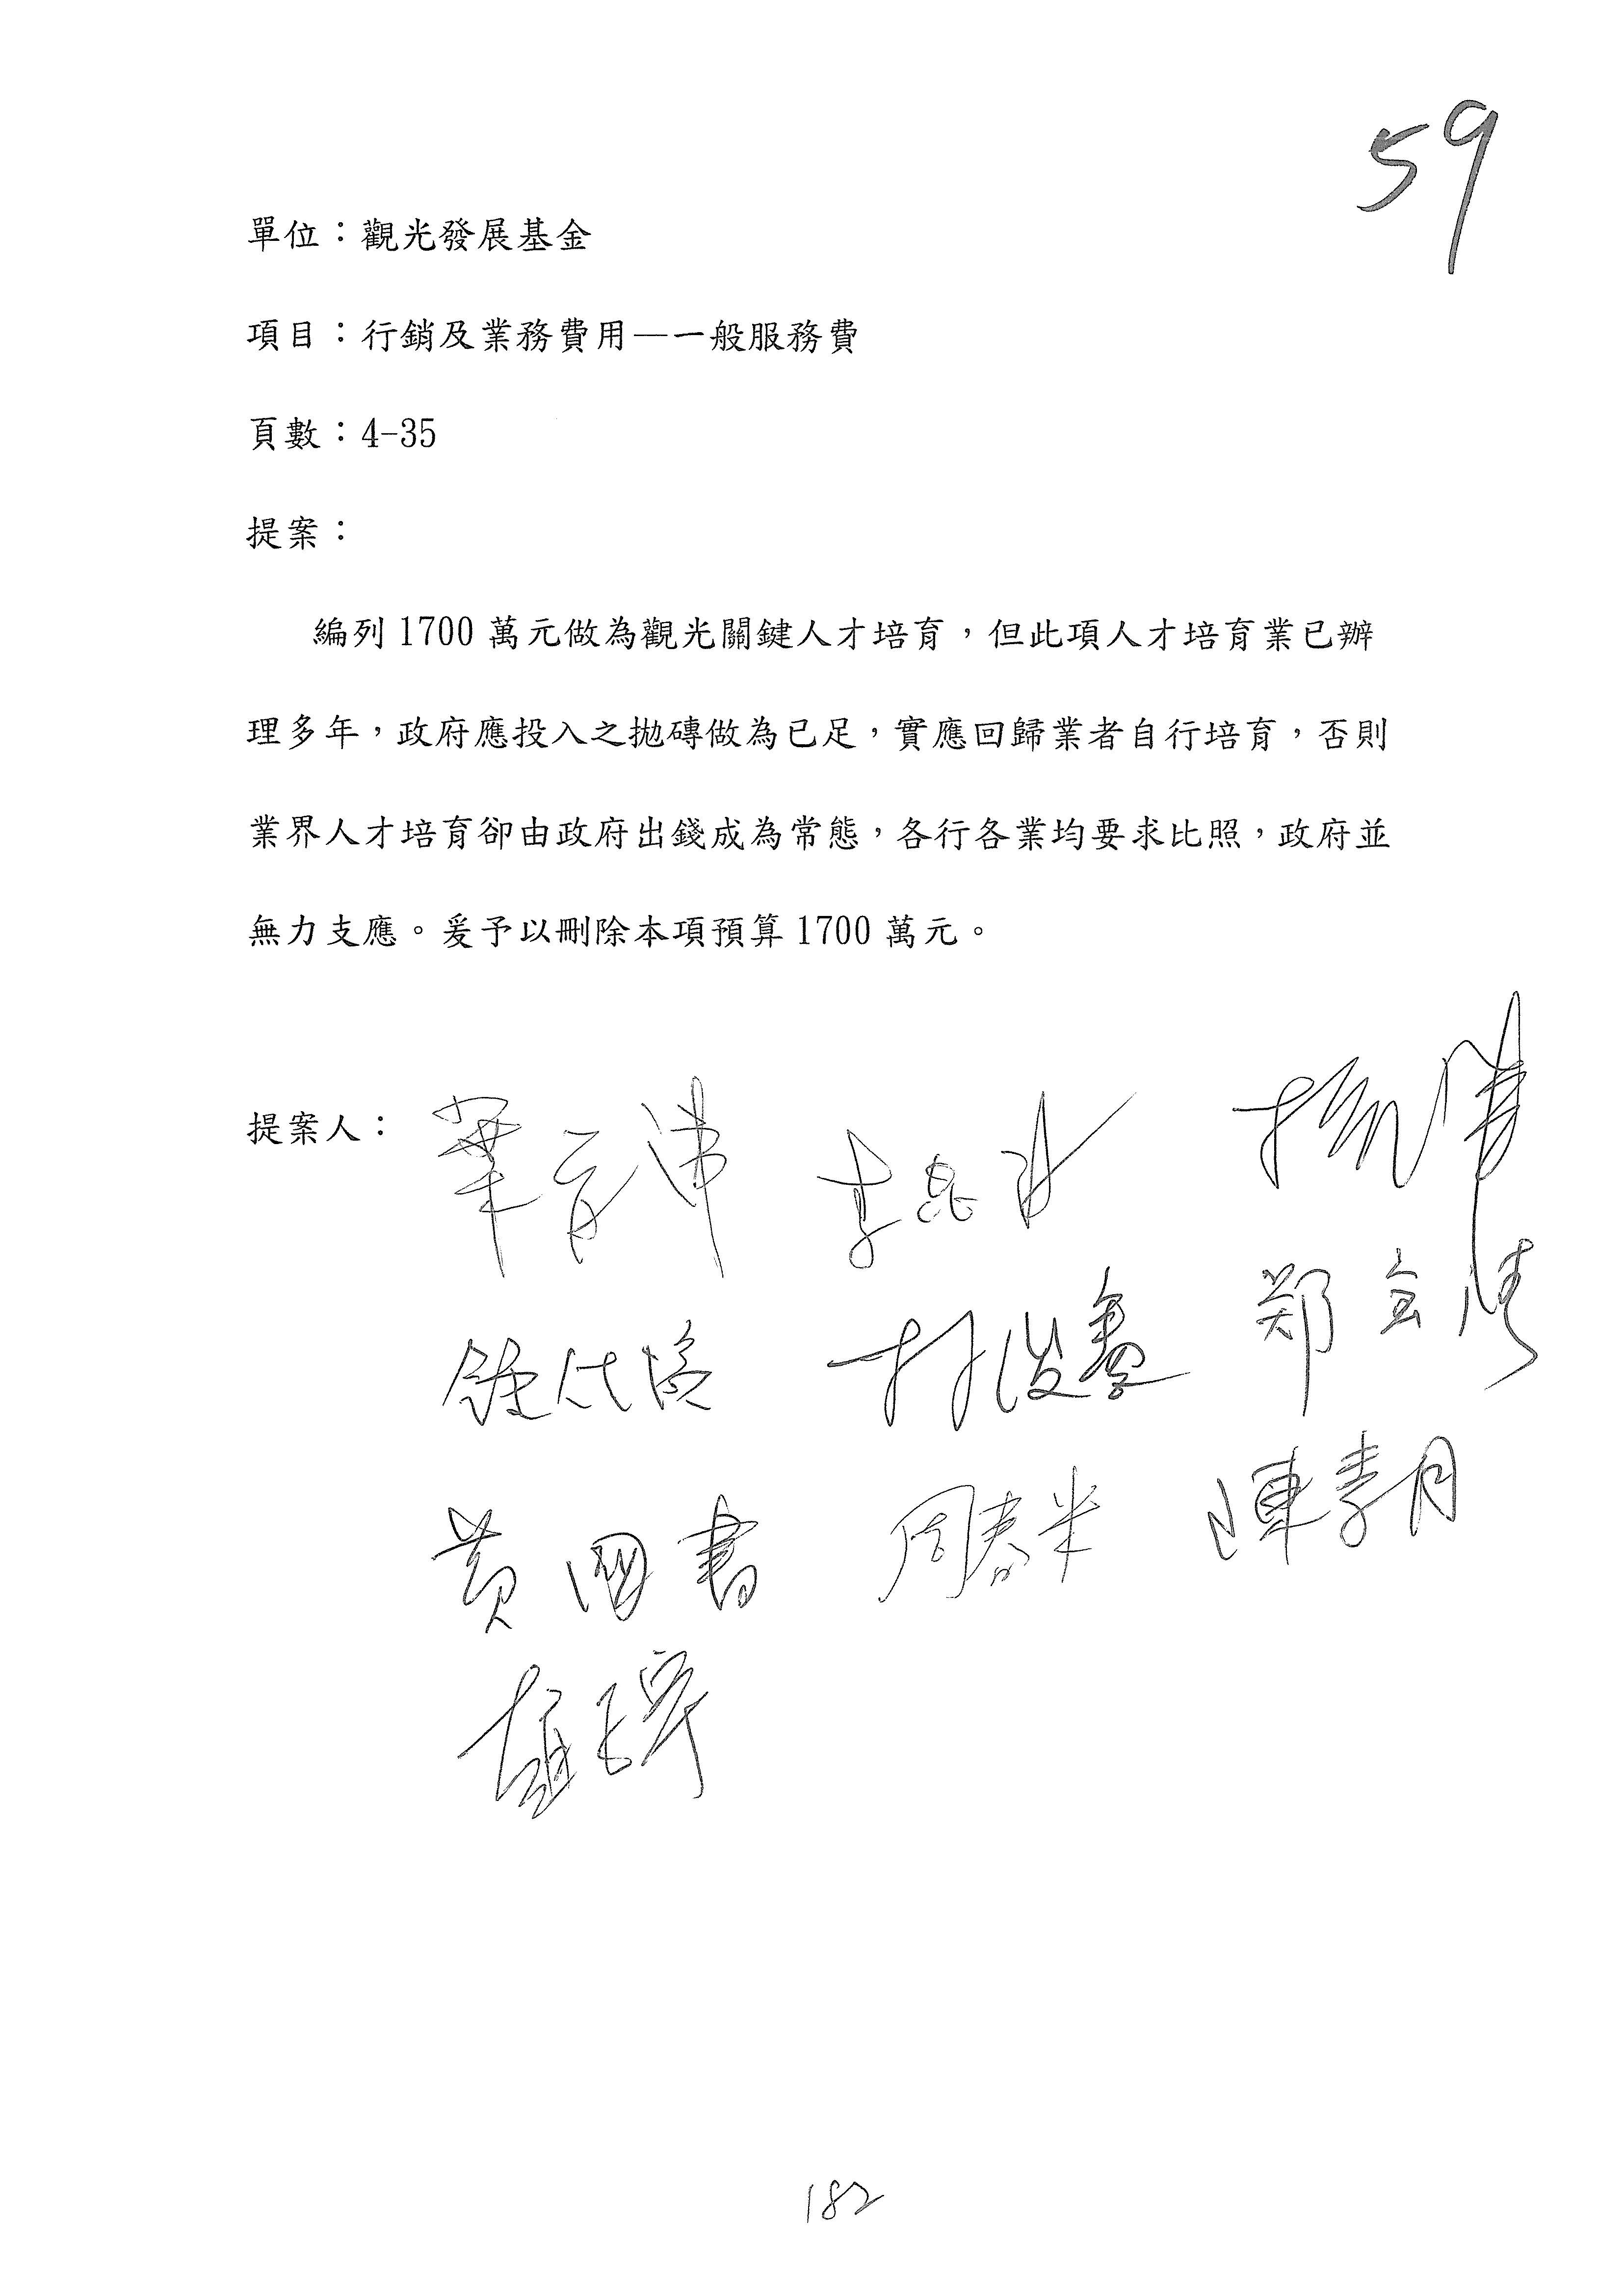 59
單位：觀光發展基金
項目：行銷及業務費用—一般服務費
頁數：4-35
提案：
編列 1700 萬元做為觀光關鍵人才培育，但此項人才培育業已辦
理多年，政府應投入之拋磚做為已足，實應回歸業者自行培育，否則
業界人才培育卻由政府出錢成為常態，各行各業均要求比照，政府並
無力支應。爰予以刪除本項預算 1700 萬元。
提案人：
葉宜津 李昆澤
鍾佳濱 林俊憲 鄭
黃國書 周春米 陳素月
182